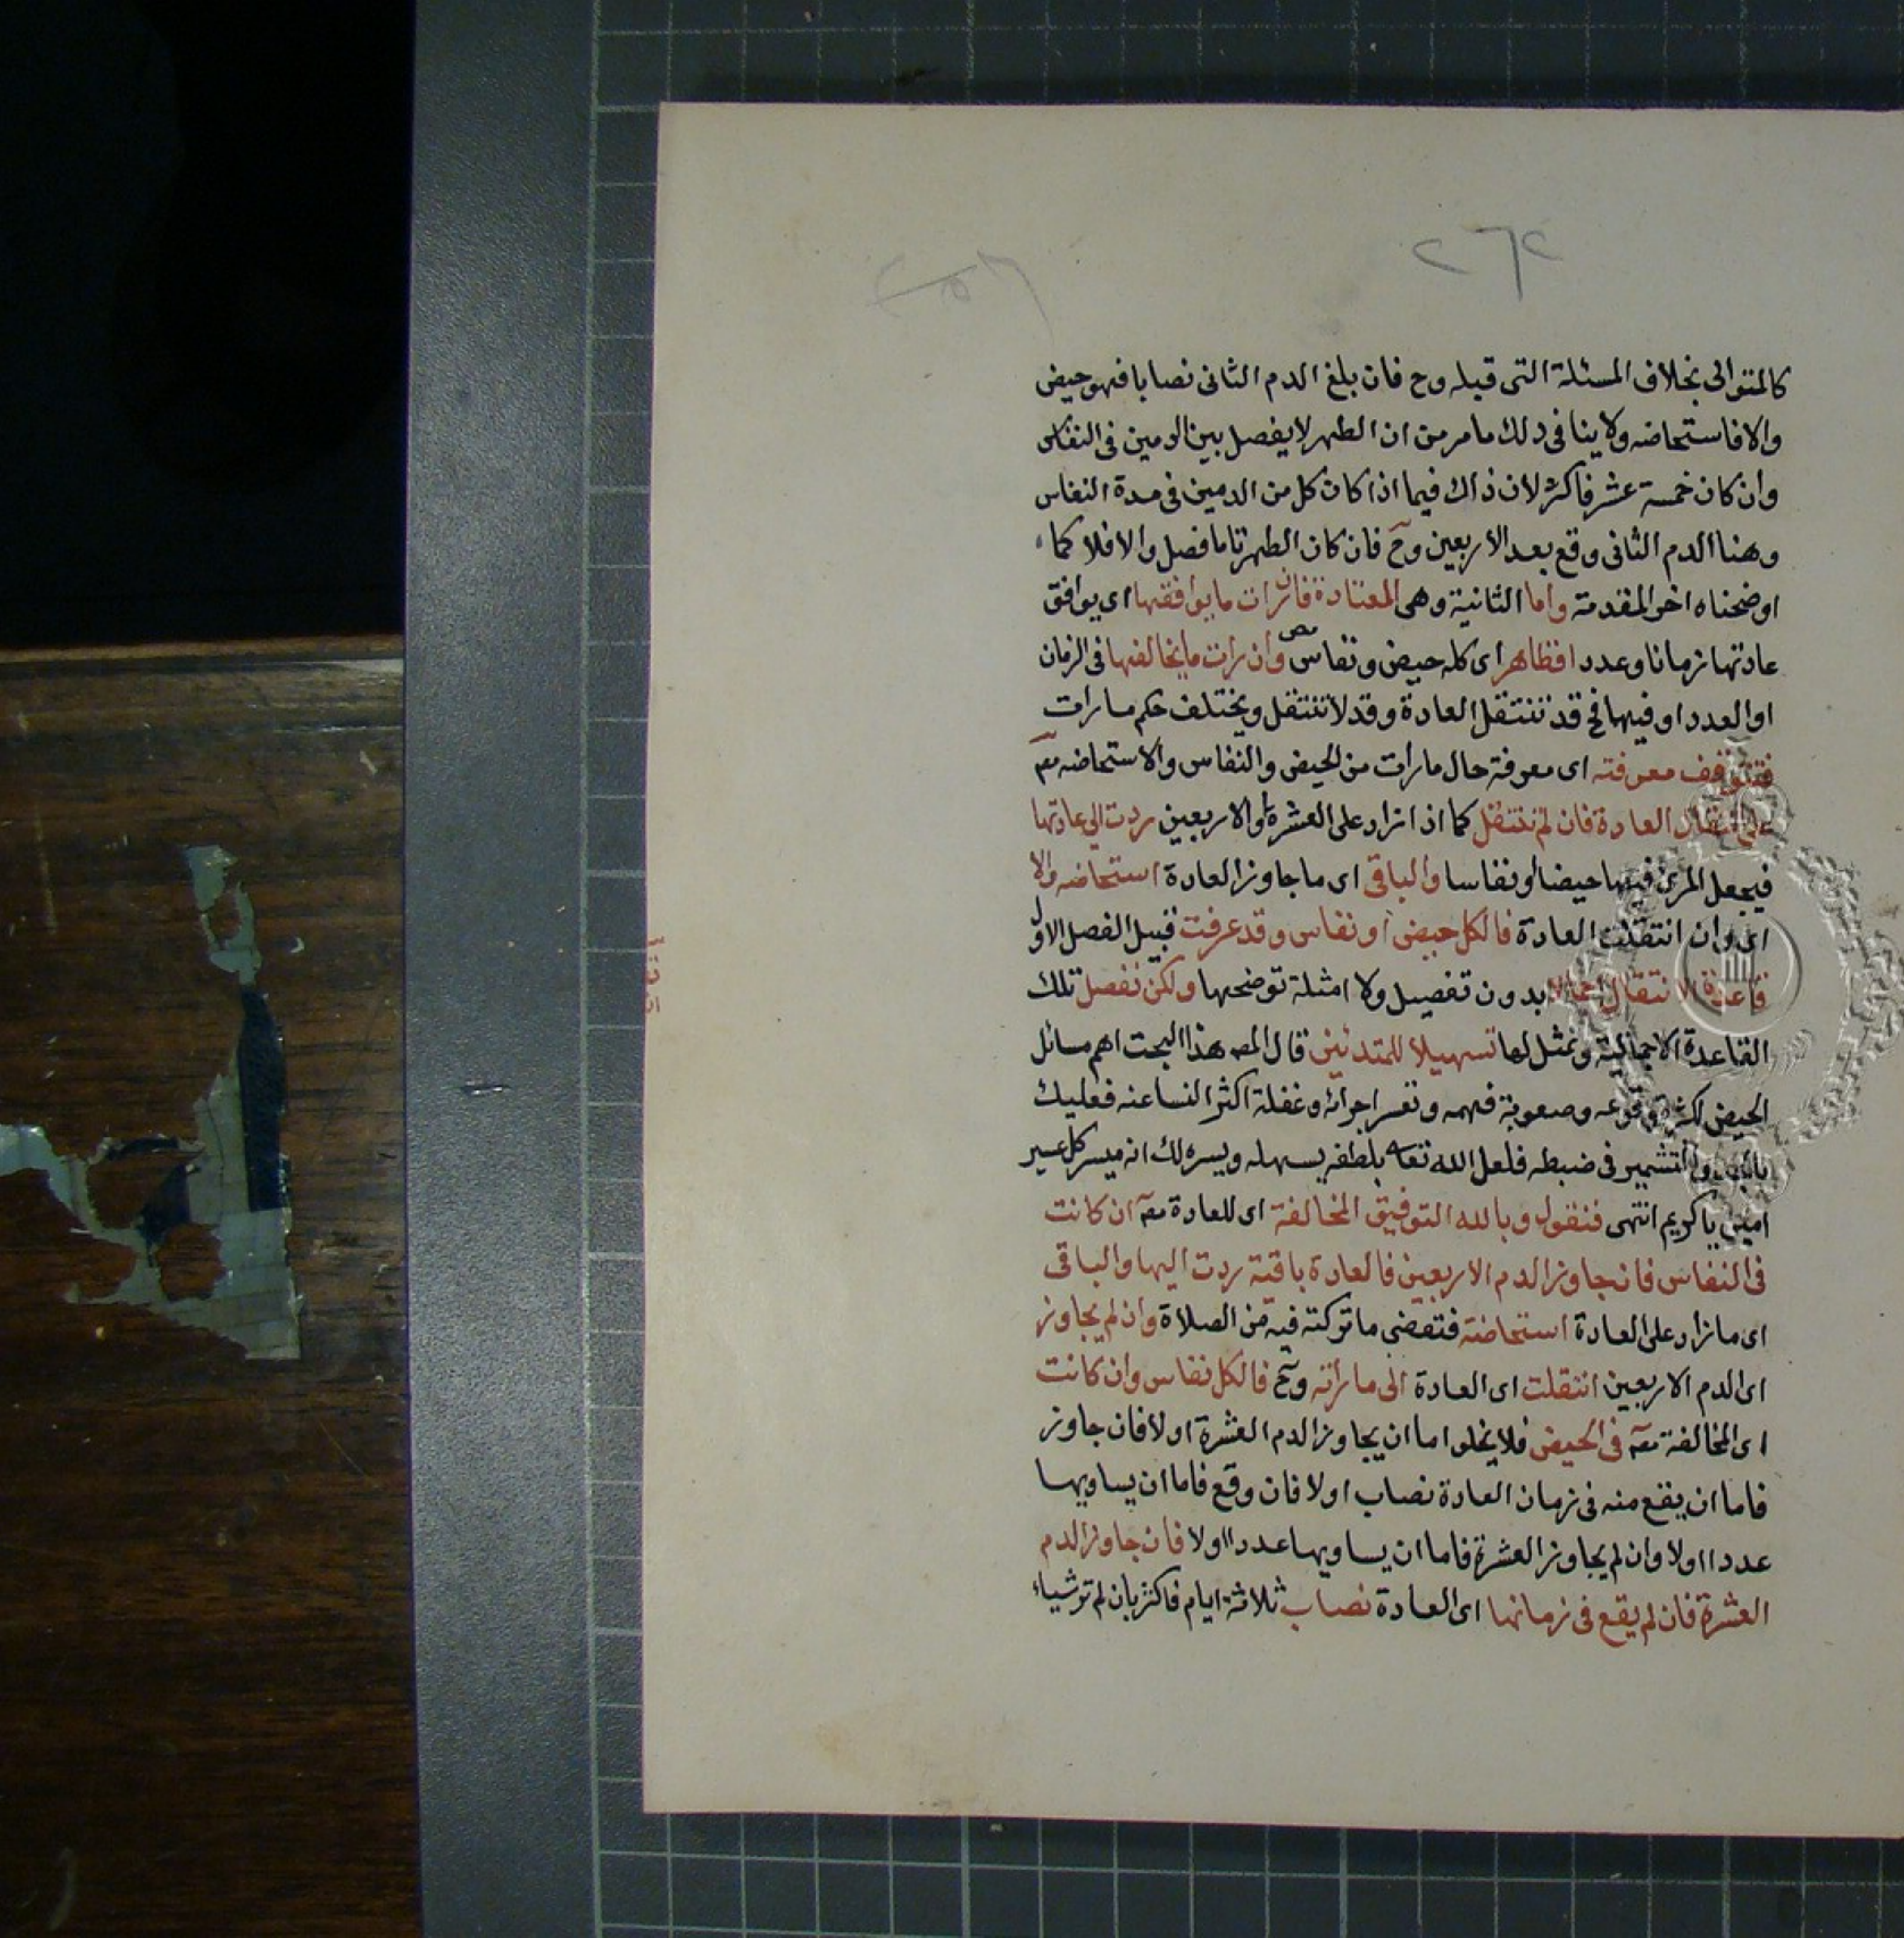 ٢٦٢
٢٥٦
كالمتوالى بخلاف المسئلة التى قبله وح فان بلغ الدم الثانى نصابا فهو حيض
والا فاستحاضه ولا ينافى ذلك ما مر من ان الطهر لا يفصل بين الدمين فى النفاس
وان كان خمسة عشر فاكثر لان ذاك فيما اذا كان كل من الدمين فى مدة النفاس
وهنا الدم الثانى وقع بعد الاربعين وح فان كان الطهر تاما فصل والا فلا كما
اوضحناه اخر المقدمة واما الثانية وهى المعتادة فان رات ما يوافقها اى يوافق
عادتها زمانا وعددا فظاهر اى كله حيض ونفاس وان رات ما يخالفها فى الزمان
او العدد او فيهما فح قد تنتقل العادة وقد لا تنتقل ويختلف حكم ما رات
فتتوقف معرفته اى معرفة حال ما رات من الحيض والنفاس والاستحاضه مصم
على انتقال العادة فان لم تنتقل كما اذا زاد على العشرة او الاربعين ردت الى عادتها
فيجعل المرئ فيها حيضا او نفاسا والباقى اى ما جاوز العادة استحاضه والا
اى وان انتقلت العادة فالكل حيض او نفاس وقد عرفت قبيل الفصل الاول
قاعدة الانتقال اجمالا بدون تفصيل ولا امثلة توضحها ولكن نفصل تلك
القاعدة الاجمالية ونمثل لها تسهيلا للمتدئين قال المصه هذا البحث اهم مسائل
الحيض لكثرة وقوعه وصعوبة فهمه وتعسر اجرائه وغفلة اكثر النسا عنه فعليك
بالجد والتشمير فى ضبطه فلعل الله تعا بلطفه يسهله ويسره لك انه ميسر كل عسير
امين يا كريم انتهى فنقول وبالله التوفيق المخالفة اى للعادة مصه ان كانت
فى النفاس فان جاوز الدم الاربعين فالعادة باقية ردت اليها والباقى
اى ما زاد على العادة استحاضة فتقضى ما تركته فيه من الصلاة وان لم يجاوز
اى الدم الاربعين انتقلت اى العادة الى ما راته وح فالكل نفاس وان كانت
اى المخالفة مصه فى الحيض فلا يخلوا اما ان يجاوز الدم العشرة او لا فان جاوز
فاما ان يقع منه فى زمان العادة نصاب او لا فان وقع فاما ان يساويها
عددا او لا وان لم يجاوز العشرة فاما ان يساويها عددا او لا فان جاوز الدم
العشرة فان لم يقع فى زمانها اى العادة نصاب ثلاثة ايام فاكثر بان لم تر شياء